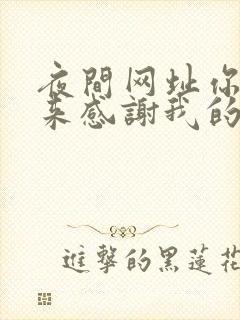 夜間网址你
来感謝我的
進擊的黑蓮花